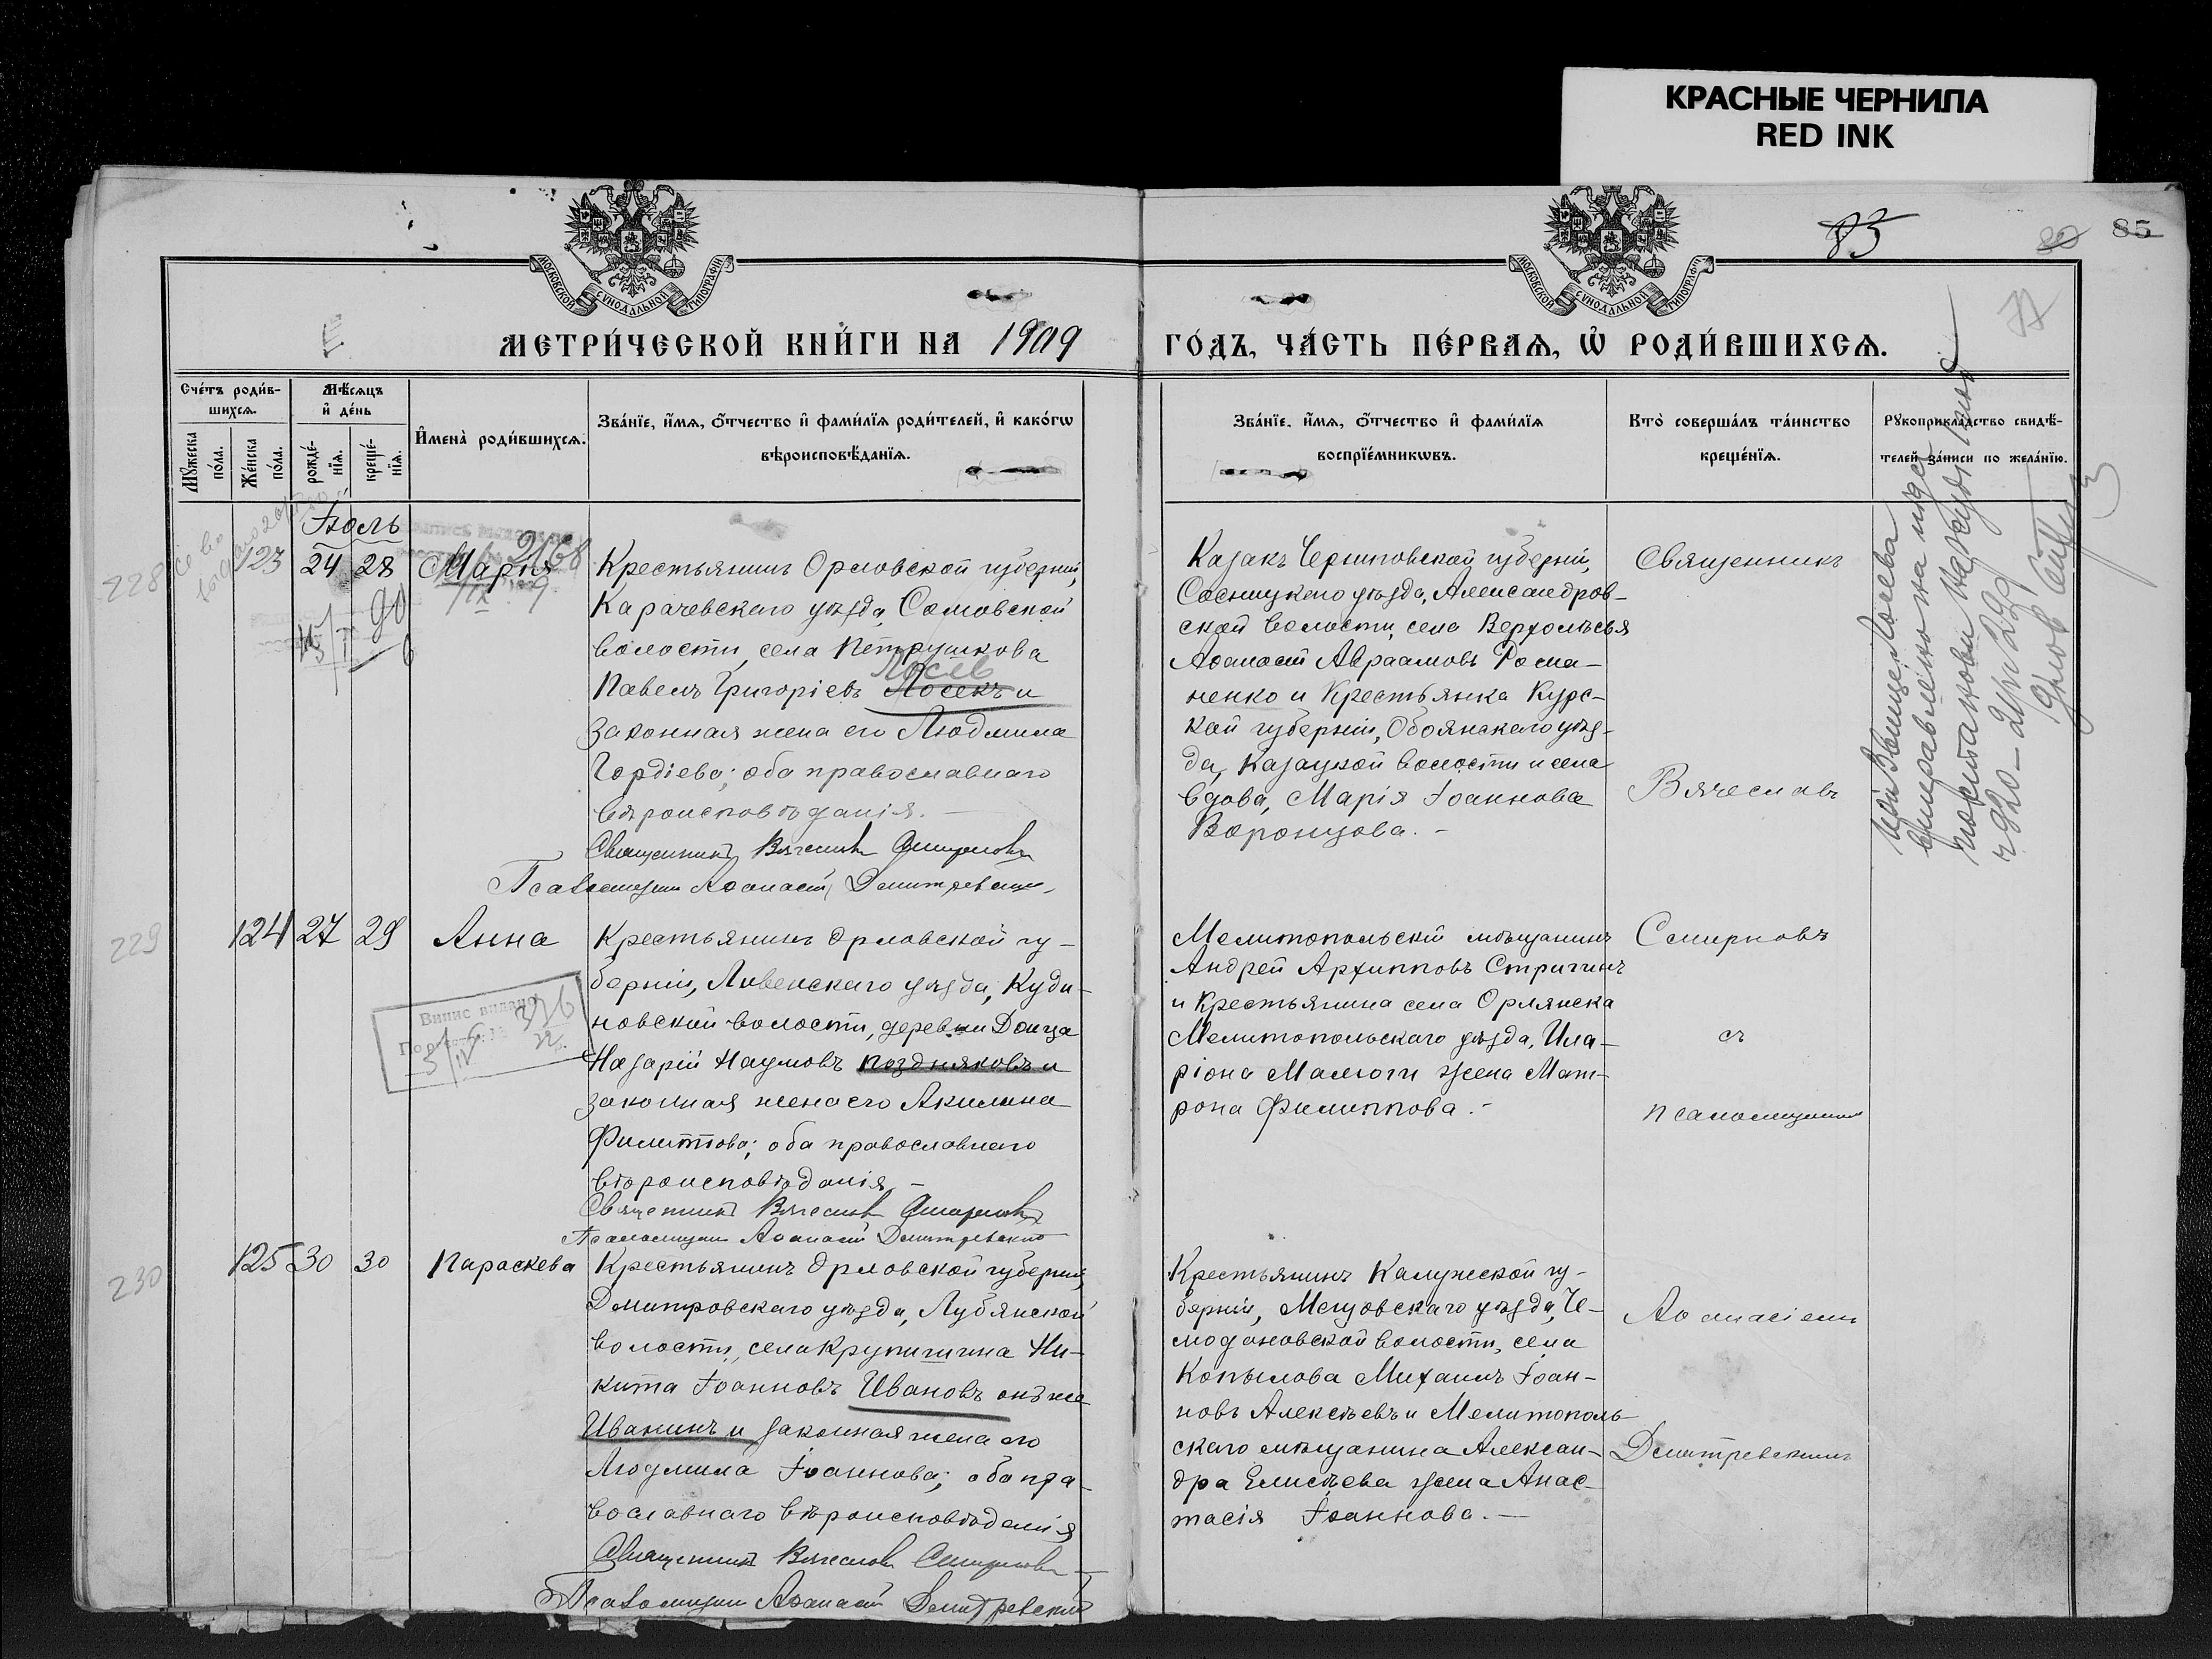 КРАСНЫЕ ЧЕРНИЛА
RED INK
МОСКОВСКОЙ СѴНОДАЛЬНОЙ ТИПОГРАФІИ
МОСКОВСКОЙ СѴНОДАЛЬНОЙ ТИПОГРАФІИ
83
80
85
77
МЕТРИ́ЧЕСКОЙ КНИ́ГИ НА 1909
ГО́ДЪ, ЧА́СТЬ ПЕ́РВАѦ, Ѡ҆ РОДИ́ВШИХСѦ.
Сче́тъ роди́в-
шихсѧ.
Мꙋ́жеска
по́ла.
Же́нска
по́ла.
Мѣ́сѧцъ
и҆ де́нь
рожде́-
нїѧ.
креще́-
нїѧ.
И҆мена̀ роди́вшихсѧ.
Зва́нїе, и҆́мѧ, ѻ҆́тчество и҆ фами́лїѧ роди́телей, и҆ како́гѡ
вѣроисповѣ́данїѧ.
Зва́нїе, и҆́мѧ, ѻ҆́тчество и҆ фами́лїѧ
воспрїе́мникѡвъ.
Кто̀ соверша́лъ та́инство
креще́нїѧ.
Рꙋкоприкла́дство свидѣ́-
телей за́писи по жела́нїю.
Іюль
228
123 24 28 Марія
2168
90
Крестьянинъ Орловской губерніи,
Карачевскаго уѣзда, Сомовской
волости, села Петрушкова
Лосев
Павелъ Григоріевъ Лосекъ и
законная жена его Людмила
Гордіева; оба православнаго
вѣроисповѣданія. —
Священникъ Вячеславъ Смирновъ
Псаломщикъ Аѳанасій Дмитревскій
Казакъ Черниговской губерніи,
Сосницкаго уѣзда, Александров-
ской волости, села Верхолѣсья
Аѳанасій Авраамовъ Рома-
ненко и крестьянка Курс-
кой губерніи, Обоянскаго уѣз-
да, Казацкой волости и села
вдова, Марія Іоаннова
Воронцова. -
Священникъ
Вячеславъ
229
124 27 29 Анна
Випис видано
Крестьянинъ Орловской гу-
берніи, Ливенскаго уѣзда, Куди-
новской волости, деревни Донца
Назарій Наумовъ Поздняковъ и
законная жена его Акилина
Филиппова; оба православнаго
вѣроисповѣданія. -
Священникъ Вячеславъ Смирновъ
Псаломщикъ Аѳанасій Дмитревскій
Мелитопольскій мѣщанинъ
Андрей Архипповъ Стригинъ
и крестьянина села Орлянска
Мелитопольскаго уѣзда, Ила-
ріона Малюги жена Мат-
рона Филиппова. -
Смирновъ
съ
псаломщикомъ
230
125 30 30 Параскева
Крестьянинъ Орловской губерніи,
Дмитровскаго уѣзда, Лубянской
волости, села Крупичина Ни-
кита Іоанновъ Ивановъ онъ же
Иванинъ и законная жена его
Людмила Іоаннова; оба пра-
вославнаго вѣроисповѣданія
Священникъ Вячеславъ Смирновъ
Псаломщикъ Аѳанасій Дмитревскій
Крестьянинъ Калужской гу-
берніи, Мещовскаго уѣзда, Че-
модановской волости, села
Копылова Михаилъ Іоан-
новъ Алексѣевъ и Мелитополь-
скаго мѣщанина Алексан-
дра Елисѣева жена Анас-
тасія Іоаннова. —
Аѳанасіемъ
Дмитревскимъ